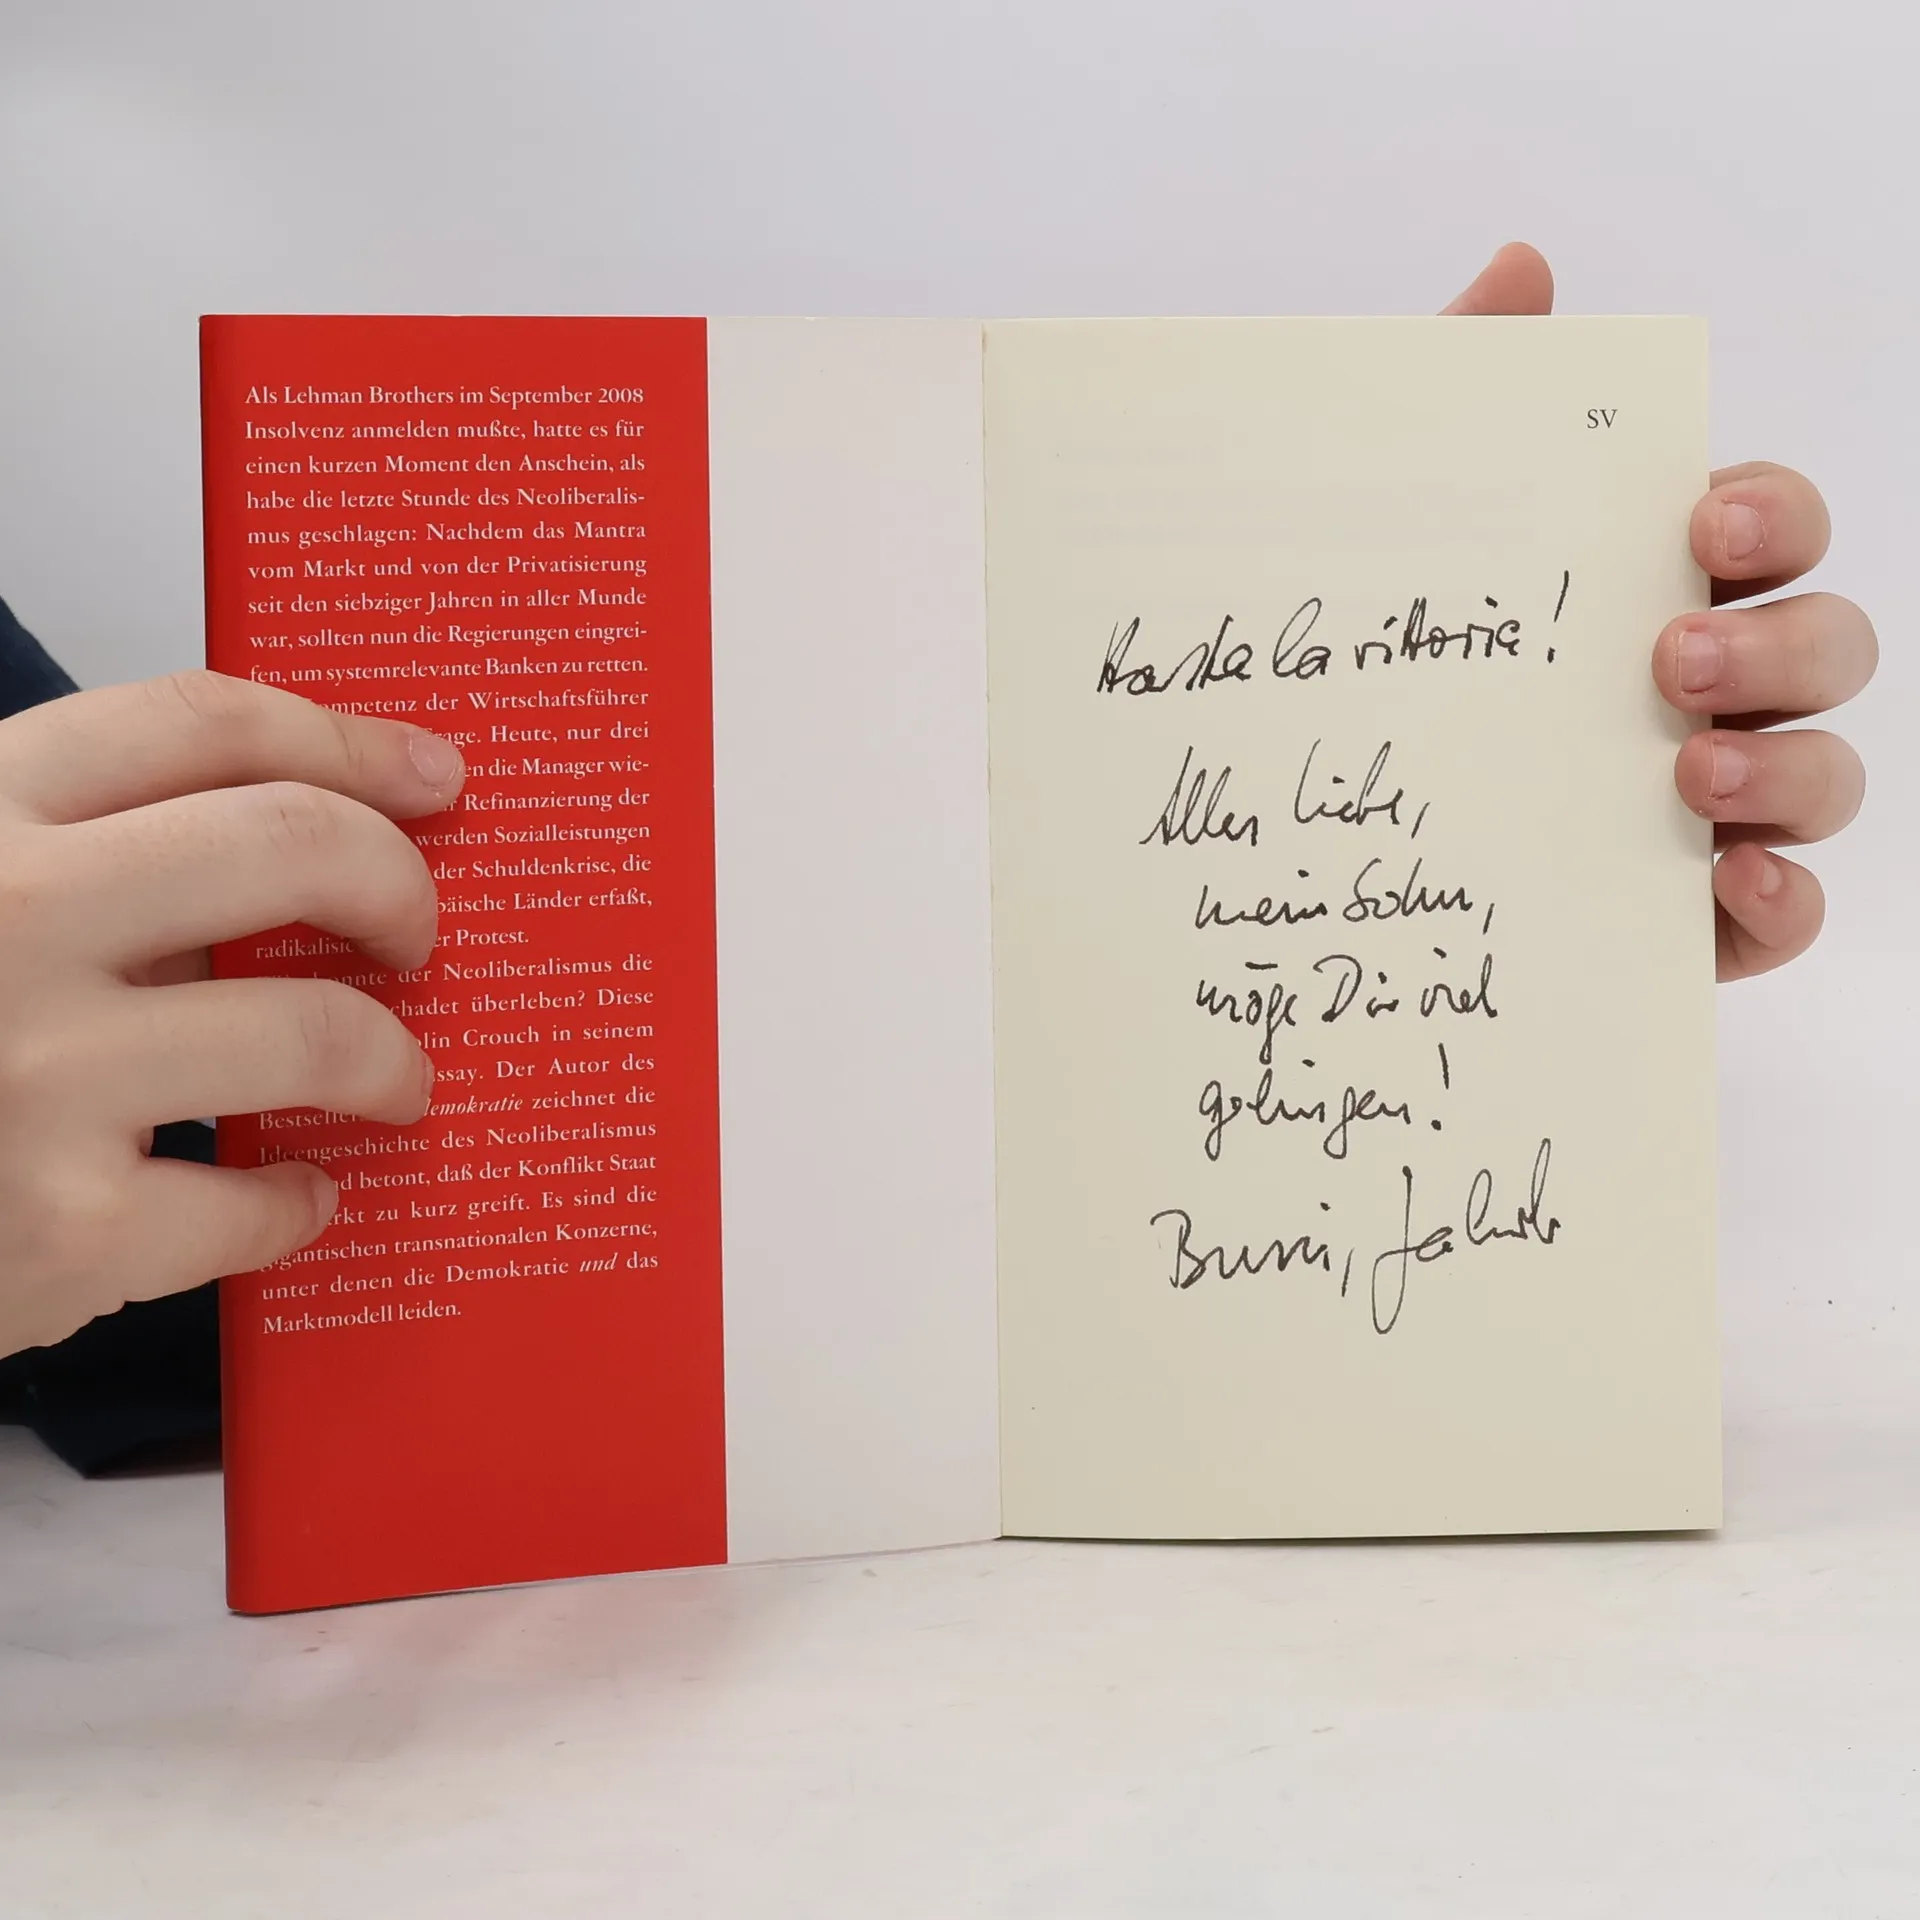 Als Lehman Brothers im September 2008
Insolvenz anmelden mußte, hatte es für
einen kurzen Moment den Anschein, als
habe die letzte Stunde des Neoliberalis-
mus geschlagen: Nachdem das Mantra
vom Markt und von der Privatisierung
seit den siebziger Jahren in aller Munde
war, sollten nun die Regierungen eingrei-
fen, um systemrelevante Banken zu retten.
der Wirtschaftsführer
Heute, nur drei
die Manager wie-
Refinanzierung der
werden Sozialleistungen
der Schuldenkrise, die
Länder erfaßt,
Protest.
der Neoliberalismus die
überleben? Diese
Crouch in seinem
Der Autor des
zeichnet die
Ideengeschichte des Neoliberalismus
betont, daß der Konflikt Staat
zu kurz greift. Es sind die
gigantischen transnationalen Konzerne,
unter denen die Demokratie und das
Marktmodell leiden.
SV
Hasta la vittoria!
Alles Liebe,
mein Sohn,
möge Dir viel
gelingen!